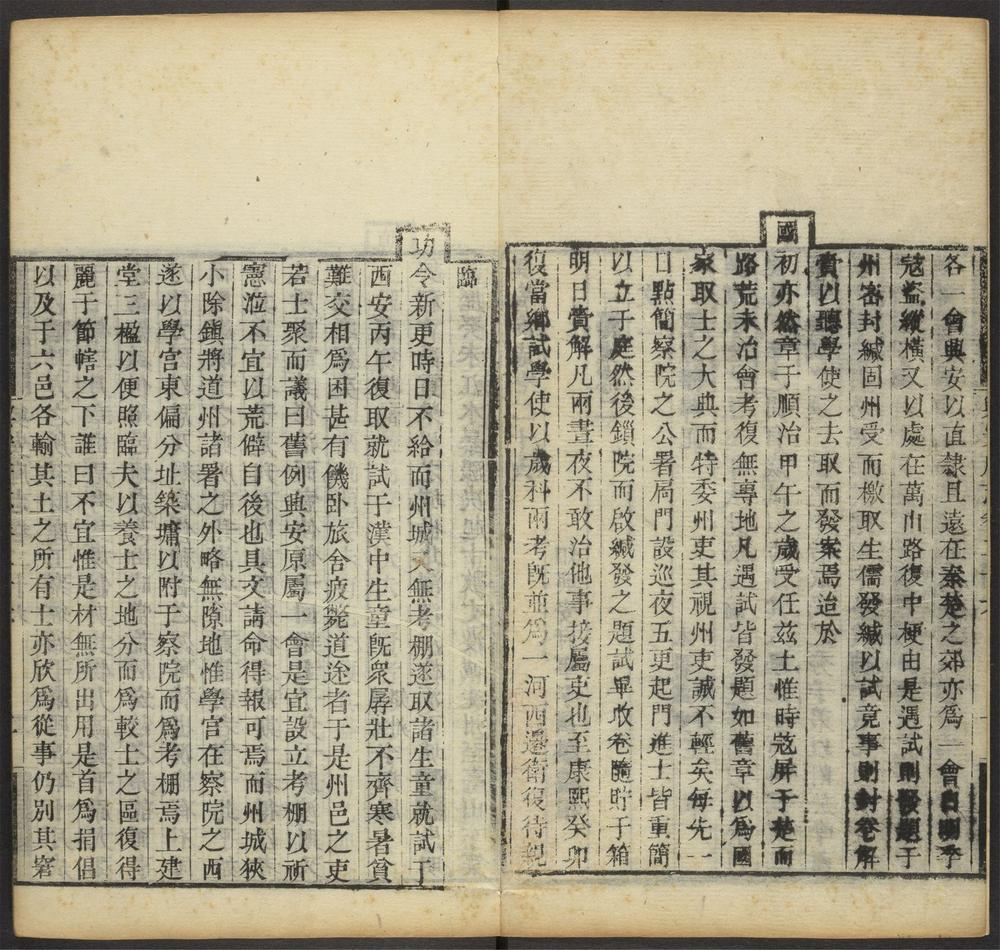 各一會興安以直隸且遠在秦楚之郊亦爲一會自明季
寇盜縱橫又以處在萬山路復中梗由是遇試則發題于
州密封緘固州受而檄取生儒發緘以試竟事則封卷解
賫以聽學使之去取而發案焉迨於
國初亦然章于順治甲午之歲受任兹土惟時寇屏于楚而
路荒未治會考復無專地凡遇試皆發題如舊章以爲國
家取士之大典而特委州吏其視州吏誠不輕矣每先一
日點簡察院之公署扃門設巡夜五更起門進士皆重簡
以立于庭然後鎖院而啟緘發之題試畢收卷隨貯于箱
明日賫解凡兩晝夜不敢治他事接屬吏也至康熙癸卯
復當鄉試學使以歲科兩考旣並爲一河西邊衛復待親
臨
功令新更時日不給而州城又無考棚遂取諸生童就試于
西安丙午復取就試于漢中生童旣衆孱壯不齊寒暑貧
難交相爲困甚有饑卧旅舍疲斃道途者于是州邑之吏
若士聚而議曰舊例興安原屬一會是宜設立考棚以祈
憲涖不宜以荒僻自後也具文請命得報可焉而州城狹
小除鎮將道州諸署之外略無隙地惟學宮在察院之西
遂以學宮東偏分址築墉以附于察院而爲考棚焉上建
堂三楹以便照臨夫以養士之地分而爲較士之區復得
麗于節轄之下誰曰不宜惟是材無所出用是首爲捐倡
以及于六邑各輸其土之所有士亦欣爲從事仍別其窘